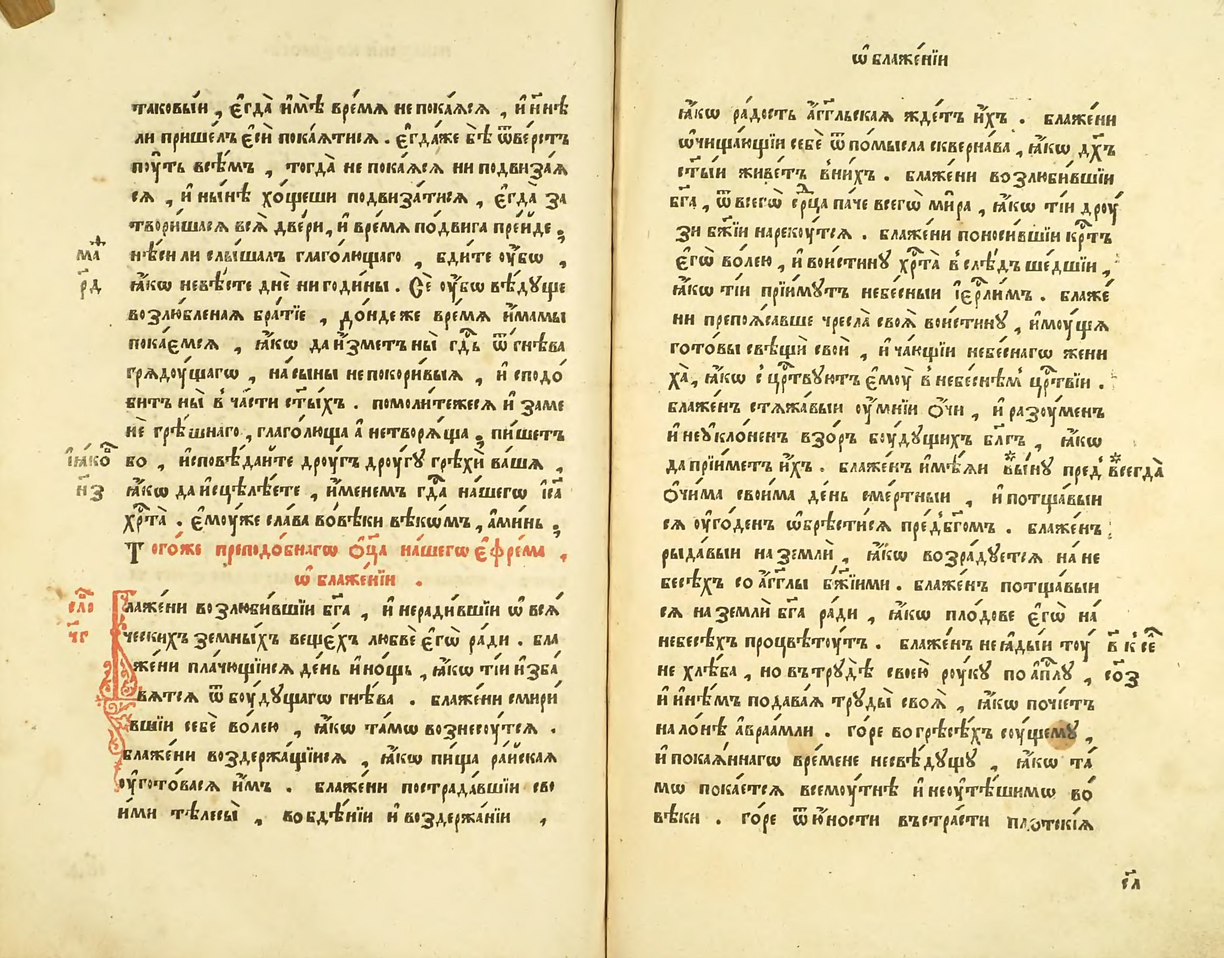 таковы́и , є҆гда̀ и҆мѣ̀ вре́мѧ непока́ѧсѧ , и҆ нн҃ѣ
ли прише́лъ є҆сѝ пока́ѧтисѧ . є҆гда́же бѣ̀ ѿве́рстъ
пꙋ́ть всѣ́мъ , тогда̀ не пока́ѧсѧ ни подвиза́ѧ
сѧ , и҆ ны́нѣ хо́щеши подвиза́тисѧ , є҆гда̀ за
твори́шасѧ всѧ̀ две́ри , и҆ вре́мѧ по́двига пре́иде .
ма҃
рд҃
нѣ́си ли слы́шалъ глаго́лющаго , бди́те ᲂу҆́бѡ ,
ꙗ҆́кѡ невѣ́сте днѐ ни годи́ны . Сѐ ᲂу҆́бѡ вѣ́дꙋще
возлю́бленаѧ бра́тїе , до́ндеже вре́мѧ и҆́мамы
пока́ємсѧ , ꙗ҆́кѡ да и҆зметъ ны̀ гд҇ь ѿ гнѣ́ва
грѧдꙋ́щагѡ , на сы́ны непокори́выѧ , и҆ сподо́
битъ ны̀ в ча́сти ст҃ы́хъ . помоли́тежесѧ и҆ за ме
нѐ грѣ́шнаго , глаго́люща а҆ нетворѧ́ща . пи́шетъ
і҆ꙗ́ко
н҃з
бо , и҆сповѣ́даите дрꙋ́гъ дрꙋ́гꙋ грѣхѝ ва́шѧ ,
ꙗ҆́кѡ да и҆сцѣлѣ́ете , и҆́менемъ гд҇а на́шегѡ і҆са
хр҇та̀ . є҆мꙋ́же сла́ва во вѣ́ки вѣкѡ́мъ , а҆ми́нь .
Тогѡ́же преподо́бнагѡ ѻ҆ц҃а̀ на́шегѡ є҆фре́ма ,
ѡ҆ блаже́нїи .
сло́
чг҃
Блаже́ни возлюби́вшїи бг҃а , и҆ неради́вшїи ѡ҆ всѧ́
ческихъ земны́хъ веще́хъ любвѐ є҆гѡ̀ ра́ди . бла
же́ни пла́чющїисѧ де́нь и҆ но́щь , ꙗ҆́кѡ ті́и и҆зба́
вѧтсѧ ѿ бꙋ́дꙋщагѡ гнѣ́ва . блаже́ни смири́
вшїи себѐ во́лею , ꙗ҆́кѡ та́мѡ вознесꙋ́тсѧ .
блаже́ни воздержа́щїисѧ , ꙗ҆́кѡ пи́ща ра́искаѧ
ᲂу҆гото́васѧ и҆́мъ . блаже́ни пострада́вшїи сво
и́ми тѣлесы̀ , во бдѣ́нїи и҆ воздержа́нїи ,
ѡ҆ блаже́нїи
ꙗ҆́кѡ ра́дость а҆́гг҃льскаѧ жде́тъ и҆́хъ . блаже́ни
ѡ҆чища́ющїи себѐ ѿ по́мысла скве́рнава , ꙗ҆́кѡ дх҃ъ
ст҃ы́и живе́тъ в ни́хъ . блаже́ни возлюби́вшїи
бг҃а , ѿ всегѡ̀ ср҇ца па́че всегѡ̀ ми́ра , ꙗ҆́кѡ ті́и дрꙋ́
зи бж҃їи нарекꙋ́тсѧ . блаже́ни поноси́вшїи кр҇тъ
є҆гѡ̀ во́лею , и҆ вои́стинꙋ хр҇та̀ в слѣ́дъ ше́дшїи ,
ꙗ҆́кѡ ті́и прїи́мꙋтъ небе́сныи і҆ер҇ли́мъ . блаже́
ни препоѧ́савше чре́сла своѧ̀ вои́стинꙋ , и҆мꙋ́щѧ
гото́вы свѣ́щи своѝ , и҆ ча́ющїи небе́снагѡ жени
ха̀ , ꙗ҆́кѡ с цр҇твꙋютъ є҆мꙋ̀ в небе́снѣм цр҇твїи .
блаже́нъ стѧжа́выи ᲂу҆́мнїи ѻ҆́чи , и҆ разꙋ́менъ
и҆ неꙋкло́ненъ взо́ръ бꙋ́дꙋщихъ бл҃гъ , ꙗ҆́кѡ
да прїи́метъ и҆́хъ . блаже́нъ и҆мѣ́ѧи вы́нꙋ пред всегда̀
ѻ҆чи́ма свои́ма де́нь сме́ртныи , и҆ потща́выи
сѧ ᲂу҆го́денъ ѡ҆брѣ́стисѧ пред бг҃омъ . блаже́нъ
рыда́выи на землѝ , ꙗ҆́кѡ возра́дꙋетсѧ на не
бесѣ́хъ со а҆́гг҃лы бж҃їими . блаже́нъ потща́выи
сѧ на землѝ бг҃а ра́ди , ꙗ҆́кѡ пло́дове є҆гѡ̀ на
небесѣ́хъ процвѣтꙋ́тъ . блаже́нъ неꙗ҆ды́и тꙋ́
в к се҃
не хлѣ́ба , но в трꙋ́дѣ свое́ю рꙋкꙋ̀ по а҆п҇лꙋ ,
со҃з
и҆ и҆нѣ́мъ подава́ѧ трꙋды̀ своѧ̀ , ꙗ҆́кѡ почі́етъ
на ло́нѣ а҆враа́мли . го́ре во грѣсѣ́хъ сꙋ́щемꙋ ,
и҆ покаѧ́ннагѡ вре́мене несвѣ́дꙋщꙋ , ꙗ҆́кѡ та́
мѡ пока́етсѧ всемꙋ́тнѣ и҆ неꙋтѣ́шимѡ во́
вѣки . го́ре ѿ ю҆́ности въ стра́сти пло́тскіѧ
сл҃